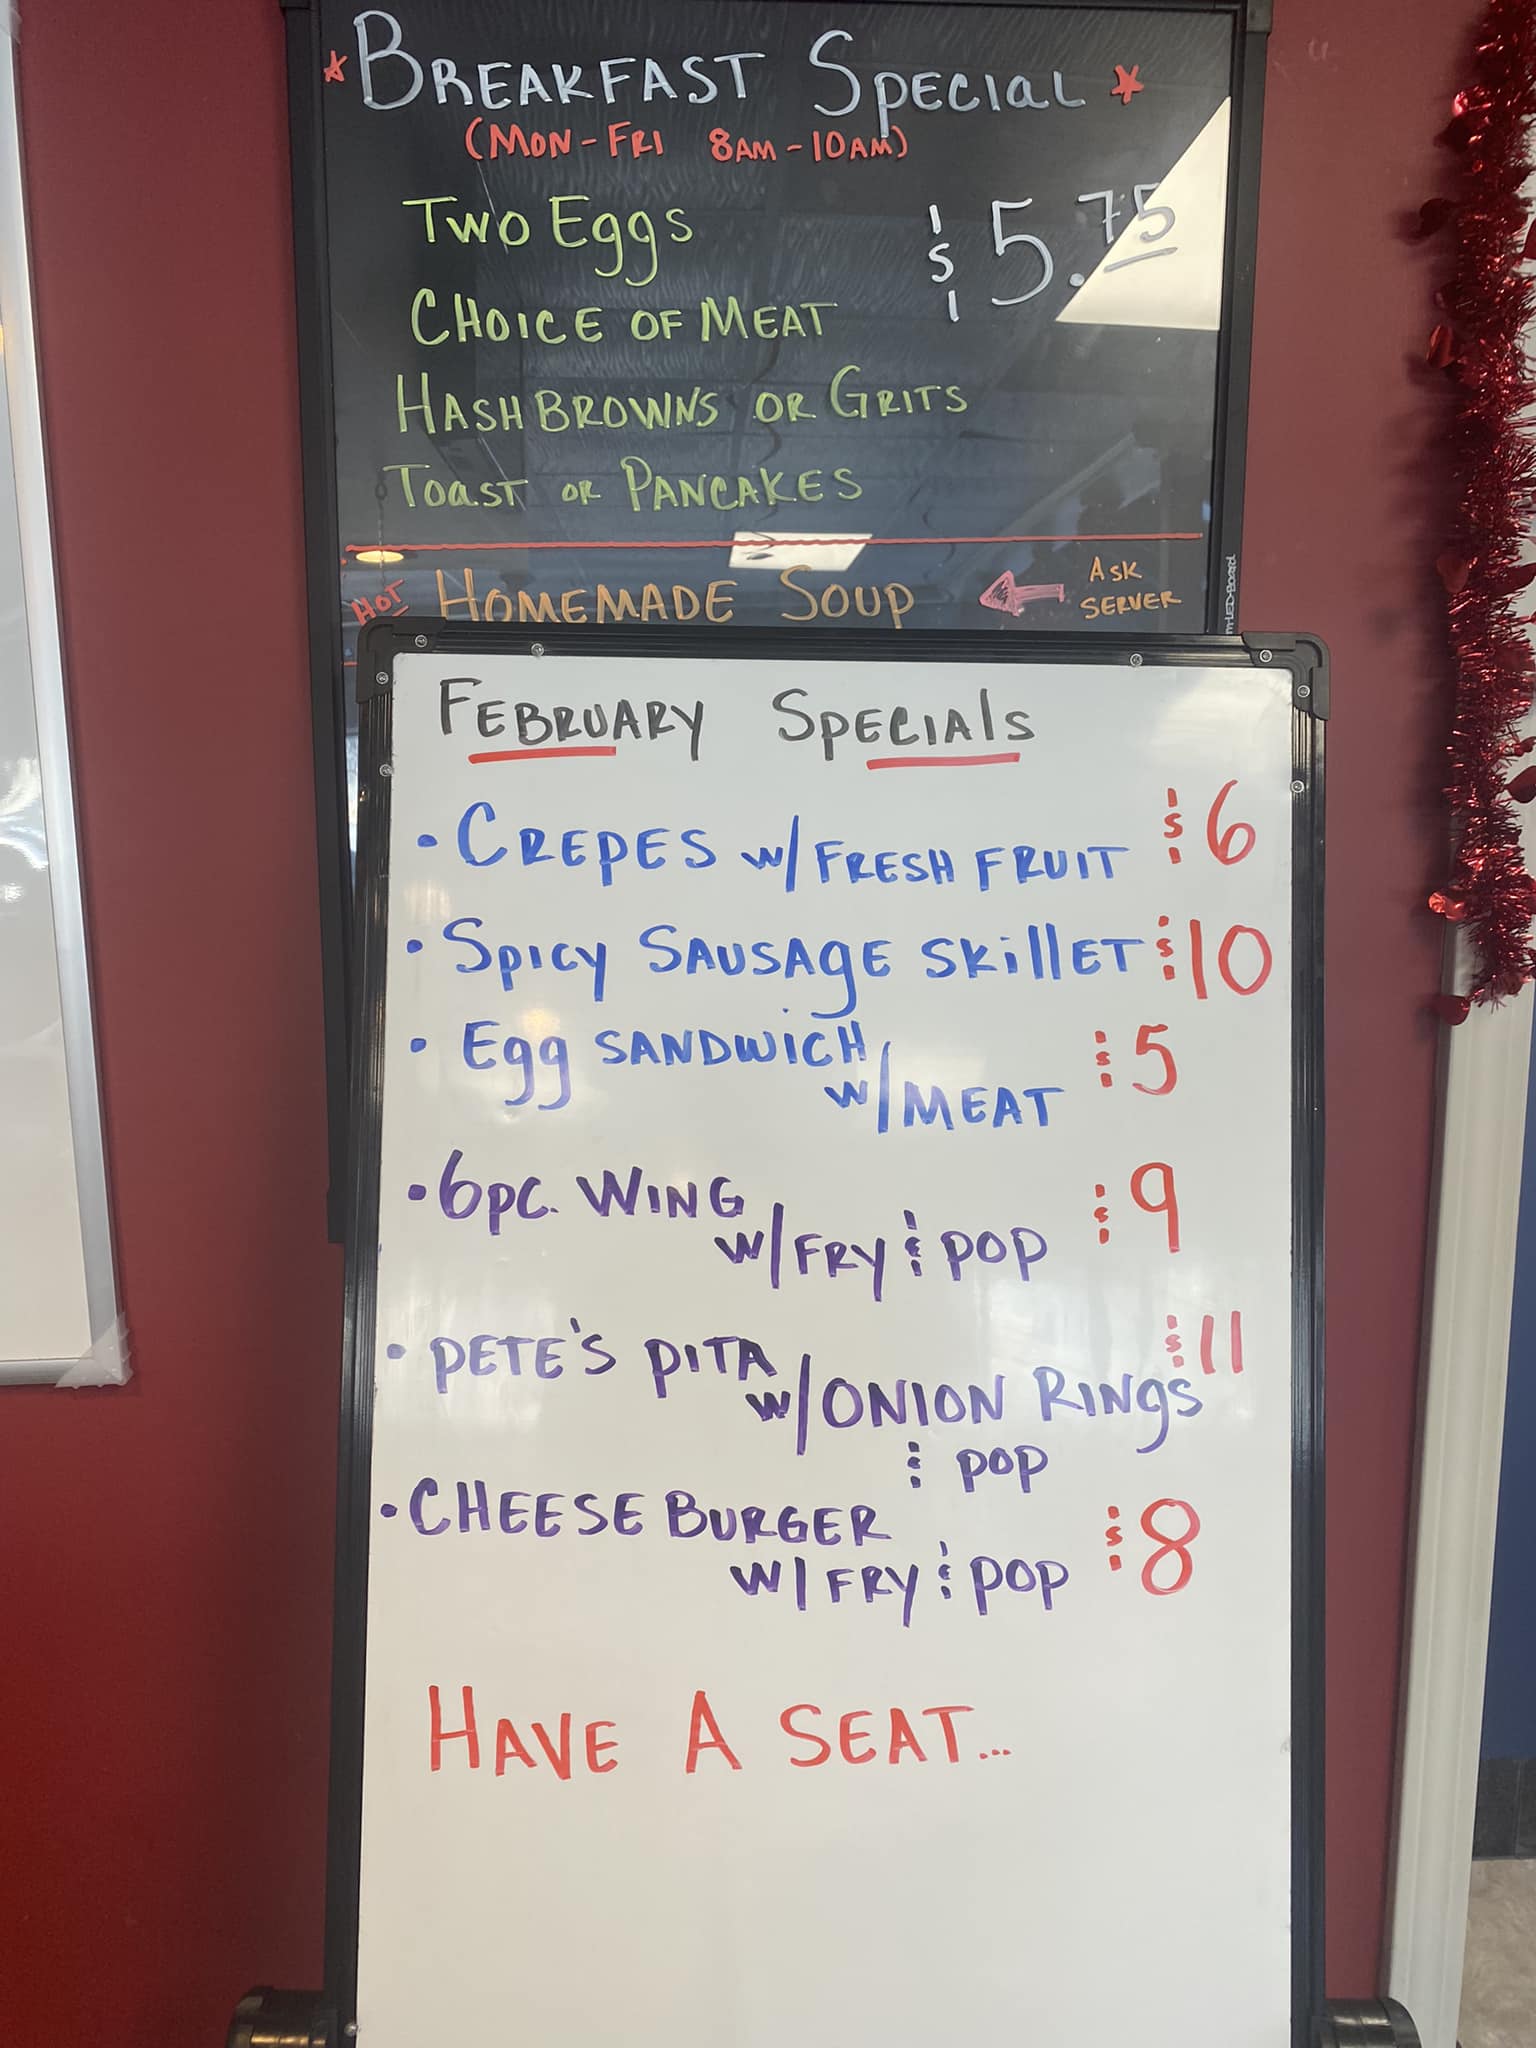 * BREAKFAST SPECIAL *
(MON-FRI 8AM-10AM)
TWO EGGS $5.75
CHOICE OF MEAT
HASHBROWNS OR GRITS
TOAST OR PANCAKES
HOT HOMEMADE SOUP ← ASK SERVER
FEBRUARY SPECIALS
• CREPES W/FRESH FRUIT $6
• SPICY SAUSAGE SKILLET $10
• EGG SANDWICH $5
W/MEAT
• 6PC. WING $9
W/FRY & POP
• PETE'S PITA $11
W/ONION RINGS
& POP
• CHEESE BURGER $8
W/FRY & POP
HAVE A SEAT...